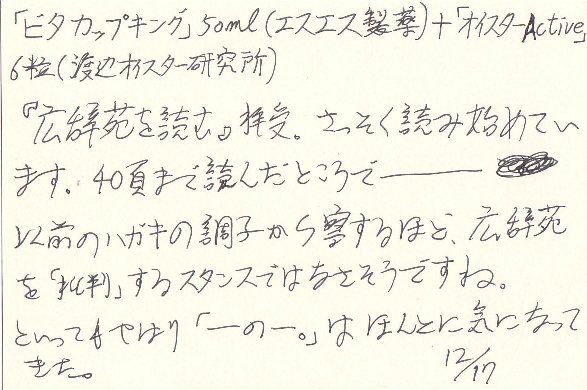 「ビタカップキング」50ml(エスエス製薬)+「オイスターActive」
6粒(渡辺オイスター研究所)
『広辞苑を読む』拝受。さっそく読み始めてい
ます。40頁まで読んだところで――
以前のハガキの調子から察するほど、広辞苑
を「批判」するスタンスではなさそうですね。
といってもやはり「一の一。」はほんとに気になって
きた。
12/17